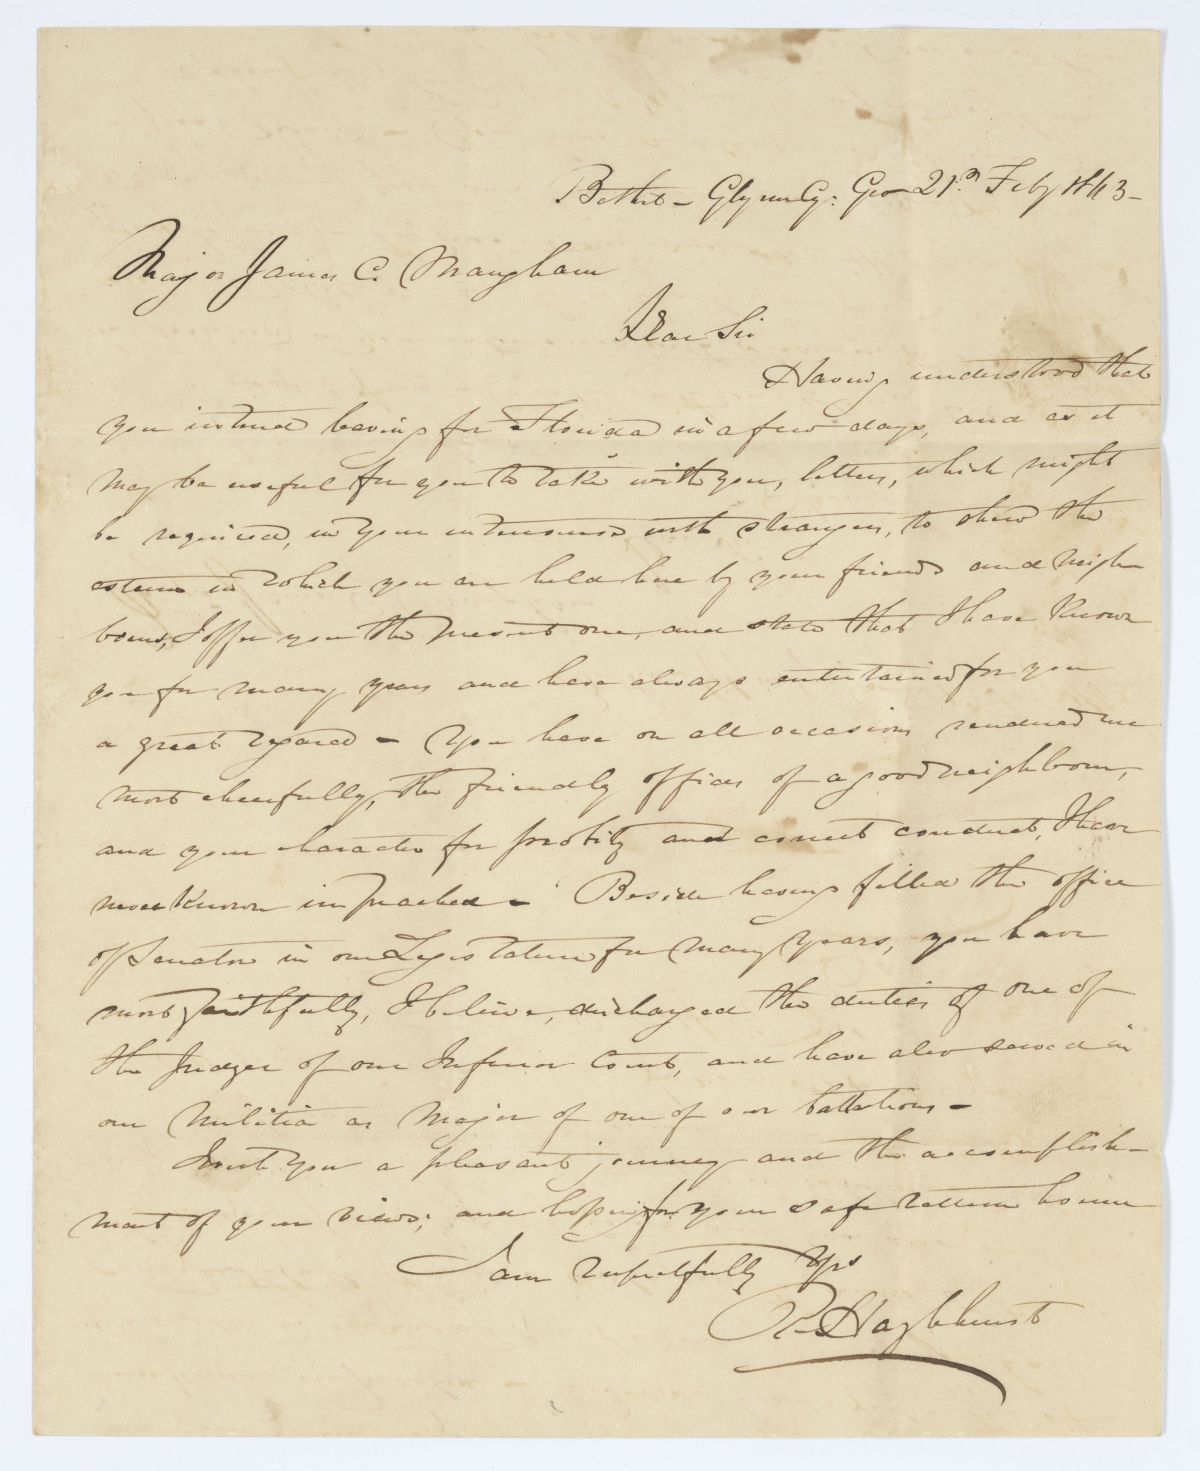 Bethel - Glynn Cy: Geo 21st Feby 1843 -
Major James C. Mangham
Dear Sir
Having understood that
you intend leaving for Florida in a few days, and as it
may be useful for you to take with you, letters, which might
be required, in your intercourse with strangers, to shew the
esteem in which you are held here by your friends and neigh
bours, I offer you the present one, and state that I have known
you for many years and have always entertained for you
a great regard - You have on all occasions rendered me
most cheerfully, the friendly offices of a good neighbour,
and your character for probity and correct conduct, I have
never known impeached - Beside having filled the office
of Senator in our Legislature for many years, you have
most faithfully, I believe, discharged the duties of one of
the Judges of our Inferior Court, and have also served in
our Militia as Major of one of our battalions -
I wish you a pleasant journey and the accomplish-
ment of your views; and hoping for your safe return home
I am respectfully Yrs
R. Hazlehurst